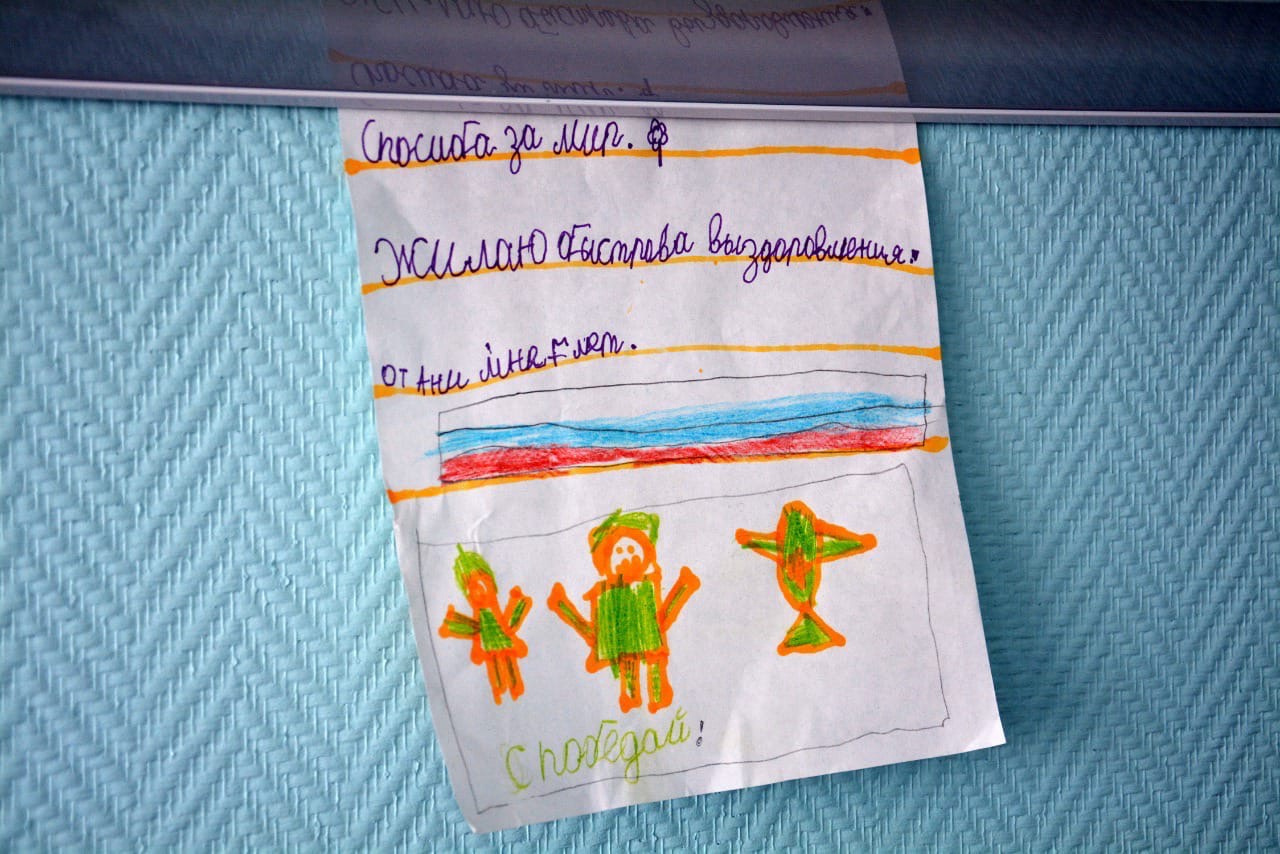 Спосиба за мир.
Жилаю быстрова выздоровления.
от Ани
С победай!